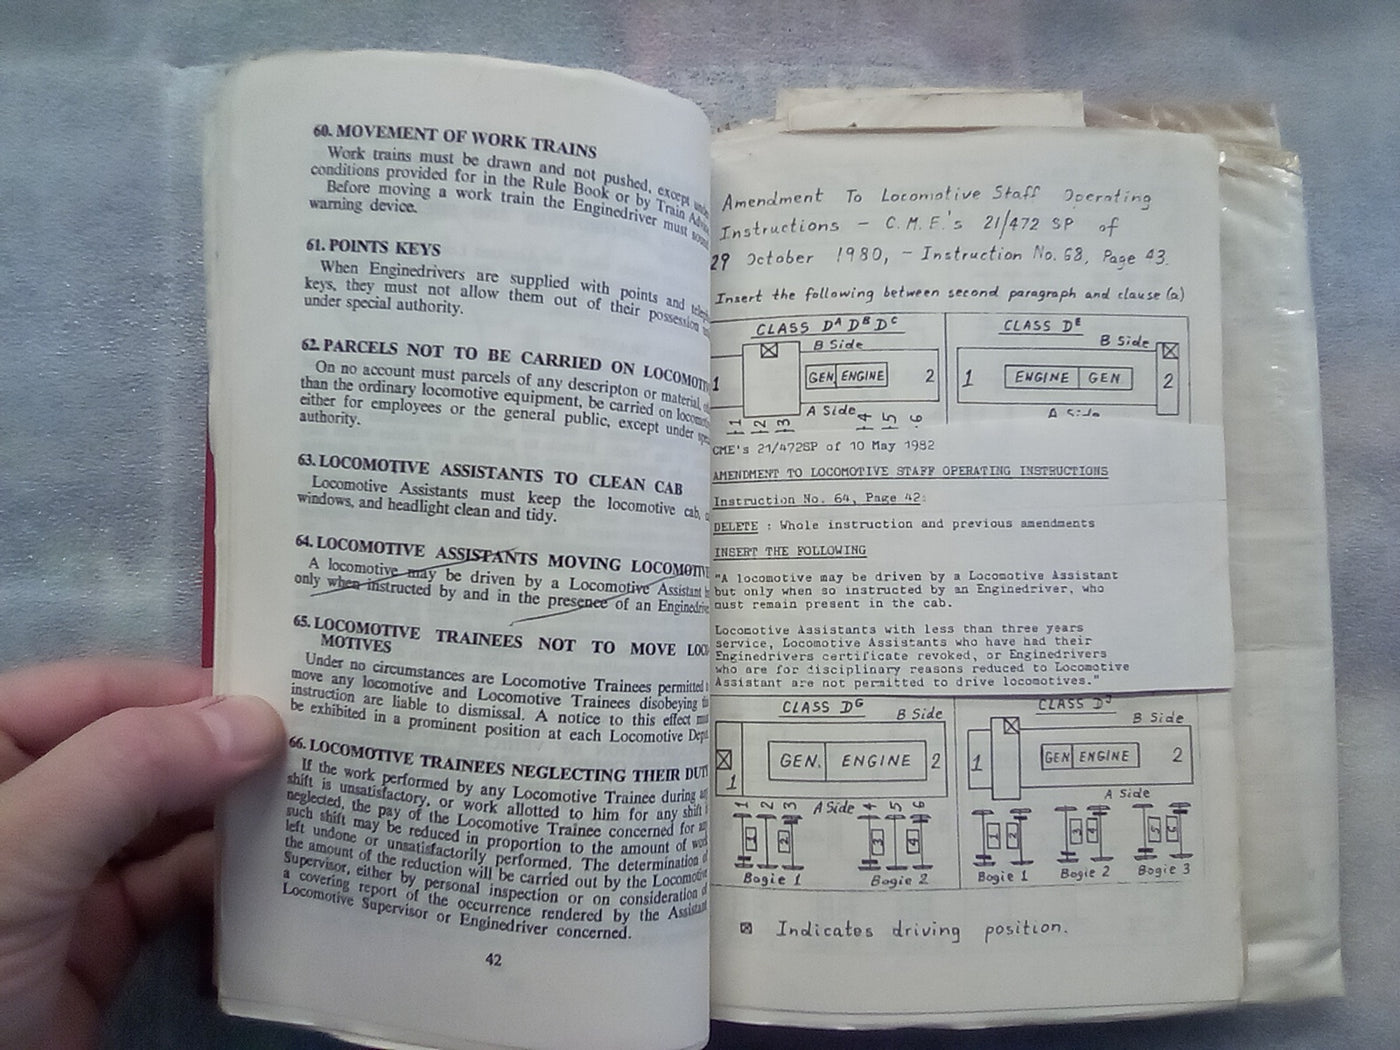 60. MOVEMENT OF WORK TRAINS
Work trains must be drawn and not pushed, except
conditions provided for in the Rule Book or by Train
Before moving a work train the Enginedriver must
warning device.
61. POINTS KEYS
When Enginedrivers are supplied with points and
keys, they must not allow them out of their possession
under special authority.
62. PARCELS NOT TO BE CARRIED ON
On no account must parcels of any descripton or material,
than the ordinary locomotive equipment, be carried on
either for employees or the general public, except under
authority.
63. LOCOMOTIVE ASSISTANTS TO CLEAN CAB
Locomotive Assistants must keep the locomotive cab,
windows, and headlight clean and tidy.
64. LOCOMOTIVE ASSISTANTS MOVING
A locomotive may be driven by a Locomotive Assistant
only when instructed by and in the presence of an
65. LOCOMOTIVE TRAINEES NOT TO MOVE LOCO-
MOTIVES
Under no circumstances are Locomotive Trainees permitted
move any locomotive and Locomotive Trainees disobeying
instruction are liable to dismissal. A notice to this effect
be exhibited in a prominent position at each Locomotive
66. LOCOMOTIVE TRAINEES NEGLECTING THEIR
If the work performed by any Locomotive Trainee during
shift is unsatisfactory, or work allotted to him for any shift
neglected, the pay of the Locomotive Trainee concerned for
such shift may be reduced in proportion to the amount of
left undone or unsatisfactorily performed. The determination
the amount of the reduction will be carried out by the Locomotive
Supervisor, either by personal inspection or on consideration of
a covering report of the occurrence rendered by the Assistant
Locomotive Supervisor or Enginedriver concerned.
42
Amendment To Locomotive Staff Operating
Instructions – C.M.E.'s 21/472 SP of
29 October 1980, – Instruction No. 68, Page 43.
Insert the following between second paragraph and clause (a)
CLASS DA DB DC
B Side
1 GEN ENGINE 2
A Side
1 2 3 4 5 6
CLASS DE
B Side
1 ENGINE GEN 2
A Side
CME's 21/472SP of 10 May 1982
AMENDMENT TO LOCOMOTIVE STAFF OPERATING INSTRUCTIONS
Instruction No. 64, Page 42:
DELETE : Whole instruction and previous amendments
INSERT THE FOLLOWING
"A locomotive may be driven by a Locomotive Assistant
but only when so instructed by an Enginedriver, who
must remain present in the cab.
Locomotive Assistants with less than three years
service, Locomotive Assistants who have had their
Enginedrivers certificate revoked, or Enginedrivers
who are for disciplinary reasons reduced to Locomotive
Assistant are not permitted to drive locomotives."
CLASS DG
B Side
1 GEN. ENGINE 2
1 2 3 A Side 4 5 6
1 2 3 4
Bogie 1 Bogie 2
CLASS DJ
B Side
1 GEN ENGINE 2
A Side
1 2 3 4 5 6
Bogie 1 Bogie 2 Bogie 3
Indicates driving position.